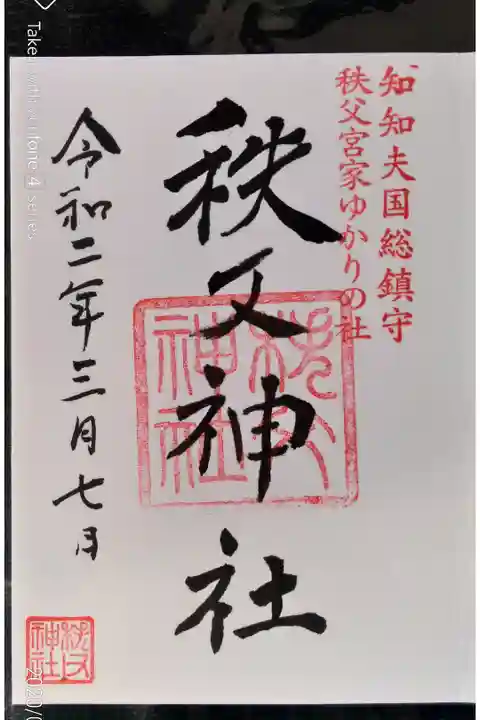 知知夫国総鎮守
秩父宮家ゆかりの社
秩父神社
秩父神社
令和二年三月七日
秩父神社
Taken with
tone 4 series
2020/0